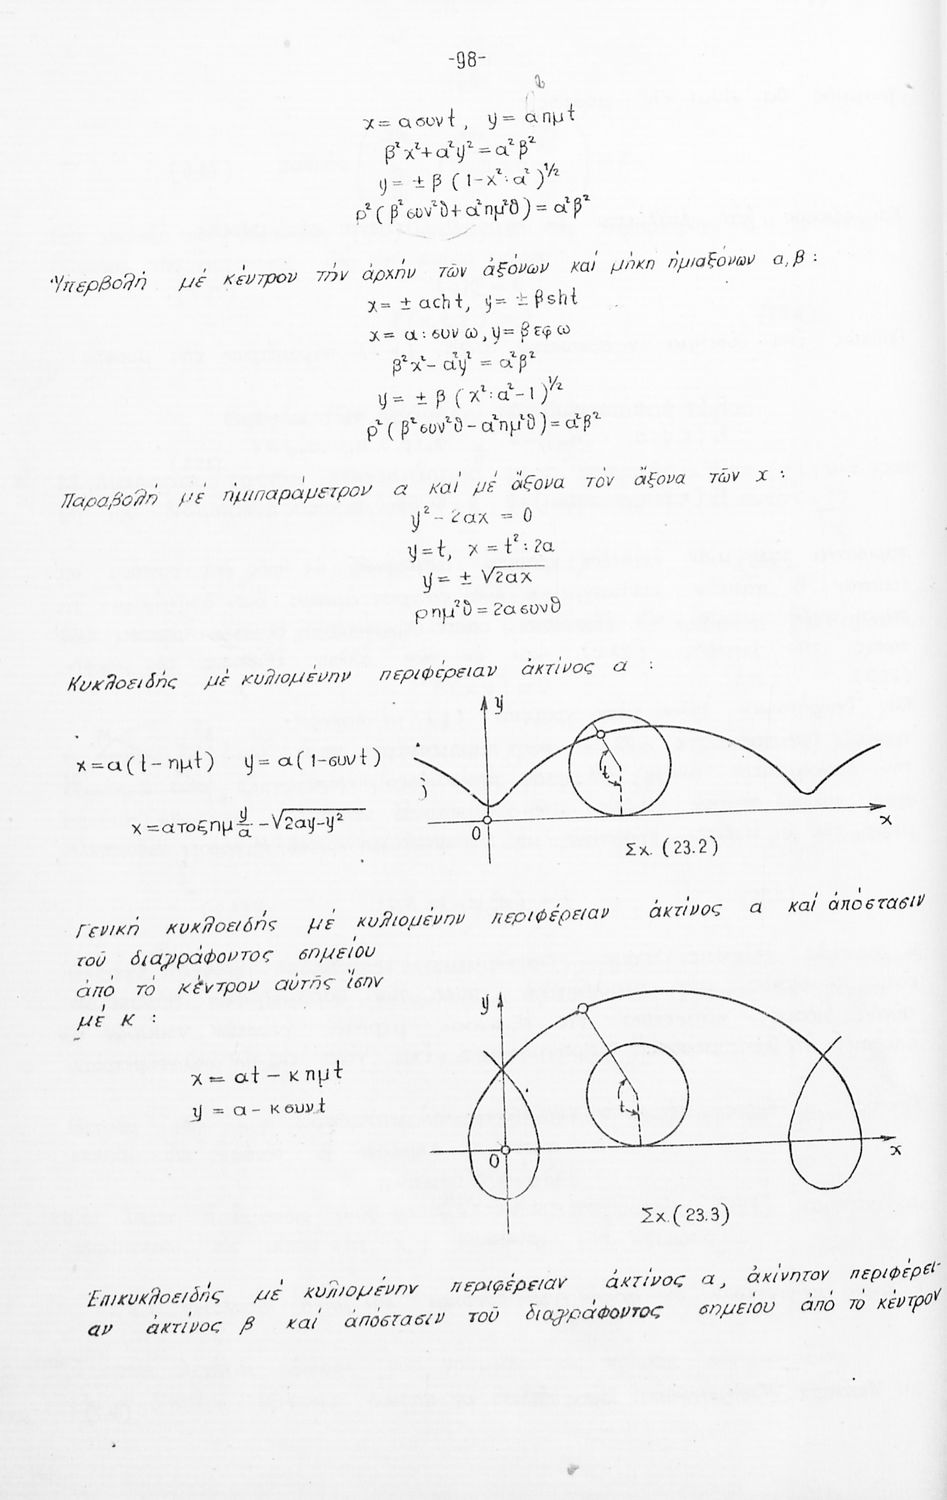 -98-
x = α συν t, y = α ημ t
β²x²+α²y² = α²β²
y = ± β (1-x²:α²)^½
ρ²(β²συν²θ+α²ημ²θ) = α²β²
Ὑπερβολή μέ κέντρον τήν ἀρχήν τῶν ἀξόνων καί μήκη ἡμιαξόνων α,β :
x = ± αcht, y = ± βsht
x = α:συν ω, y = β εφ ω
β²x² - α²y² = α²β²
y = ± β (x²:α²-1)^½
ρ²(β²συν²θ - α²ημ²θ) = α²β²
Παραβολή μέ ἡμιπαράμετρον α καί μέ ἄξονα τόν ἄξονα τῶν x :
y² - 2αx = 0
y = t, x = t²:2α
y = ± √2αx
ρημ²θ = 2ασυνθ
Κυκλοειδής μέ κυλιομένην περιφέρειαν ἀκτίνος α :
x = α(t - ημt) y = α(1-συνt)
x = ατοξημ y/α - √2αy-y²
y
t
0
x
Σχ. (23.2)
Γενική κυκλοειδής μέ κυλιομένην περιφέρειαν ἀκτίνος α καί ἀπόστασιν
τοῦ διαγράφοντος σημείου
ἀπό τό κέντρον αὐτῆς ἴσην
μέ κ :
x = αt - κημt
y = α - κσυνt
y
t
0
x
Σχ.(23.3)
Ἐπικυκλοειδής μέ κυλιομένην περιφέρειαν ἀκτίνος α, ἀκίνητον περιφέρει-
αν ἀκτίνος β καί ἀπόστασιν τοῦ διαγράφοντος σημείου ἀπό τό κέντρον